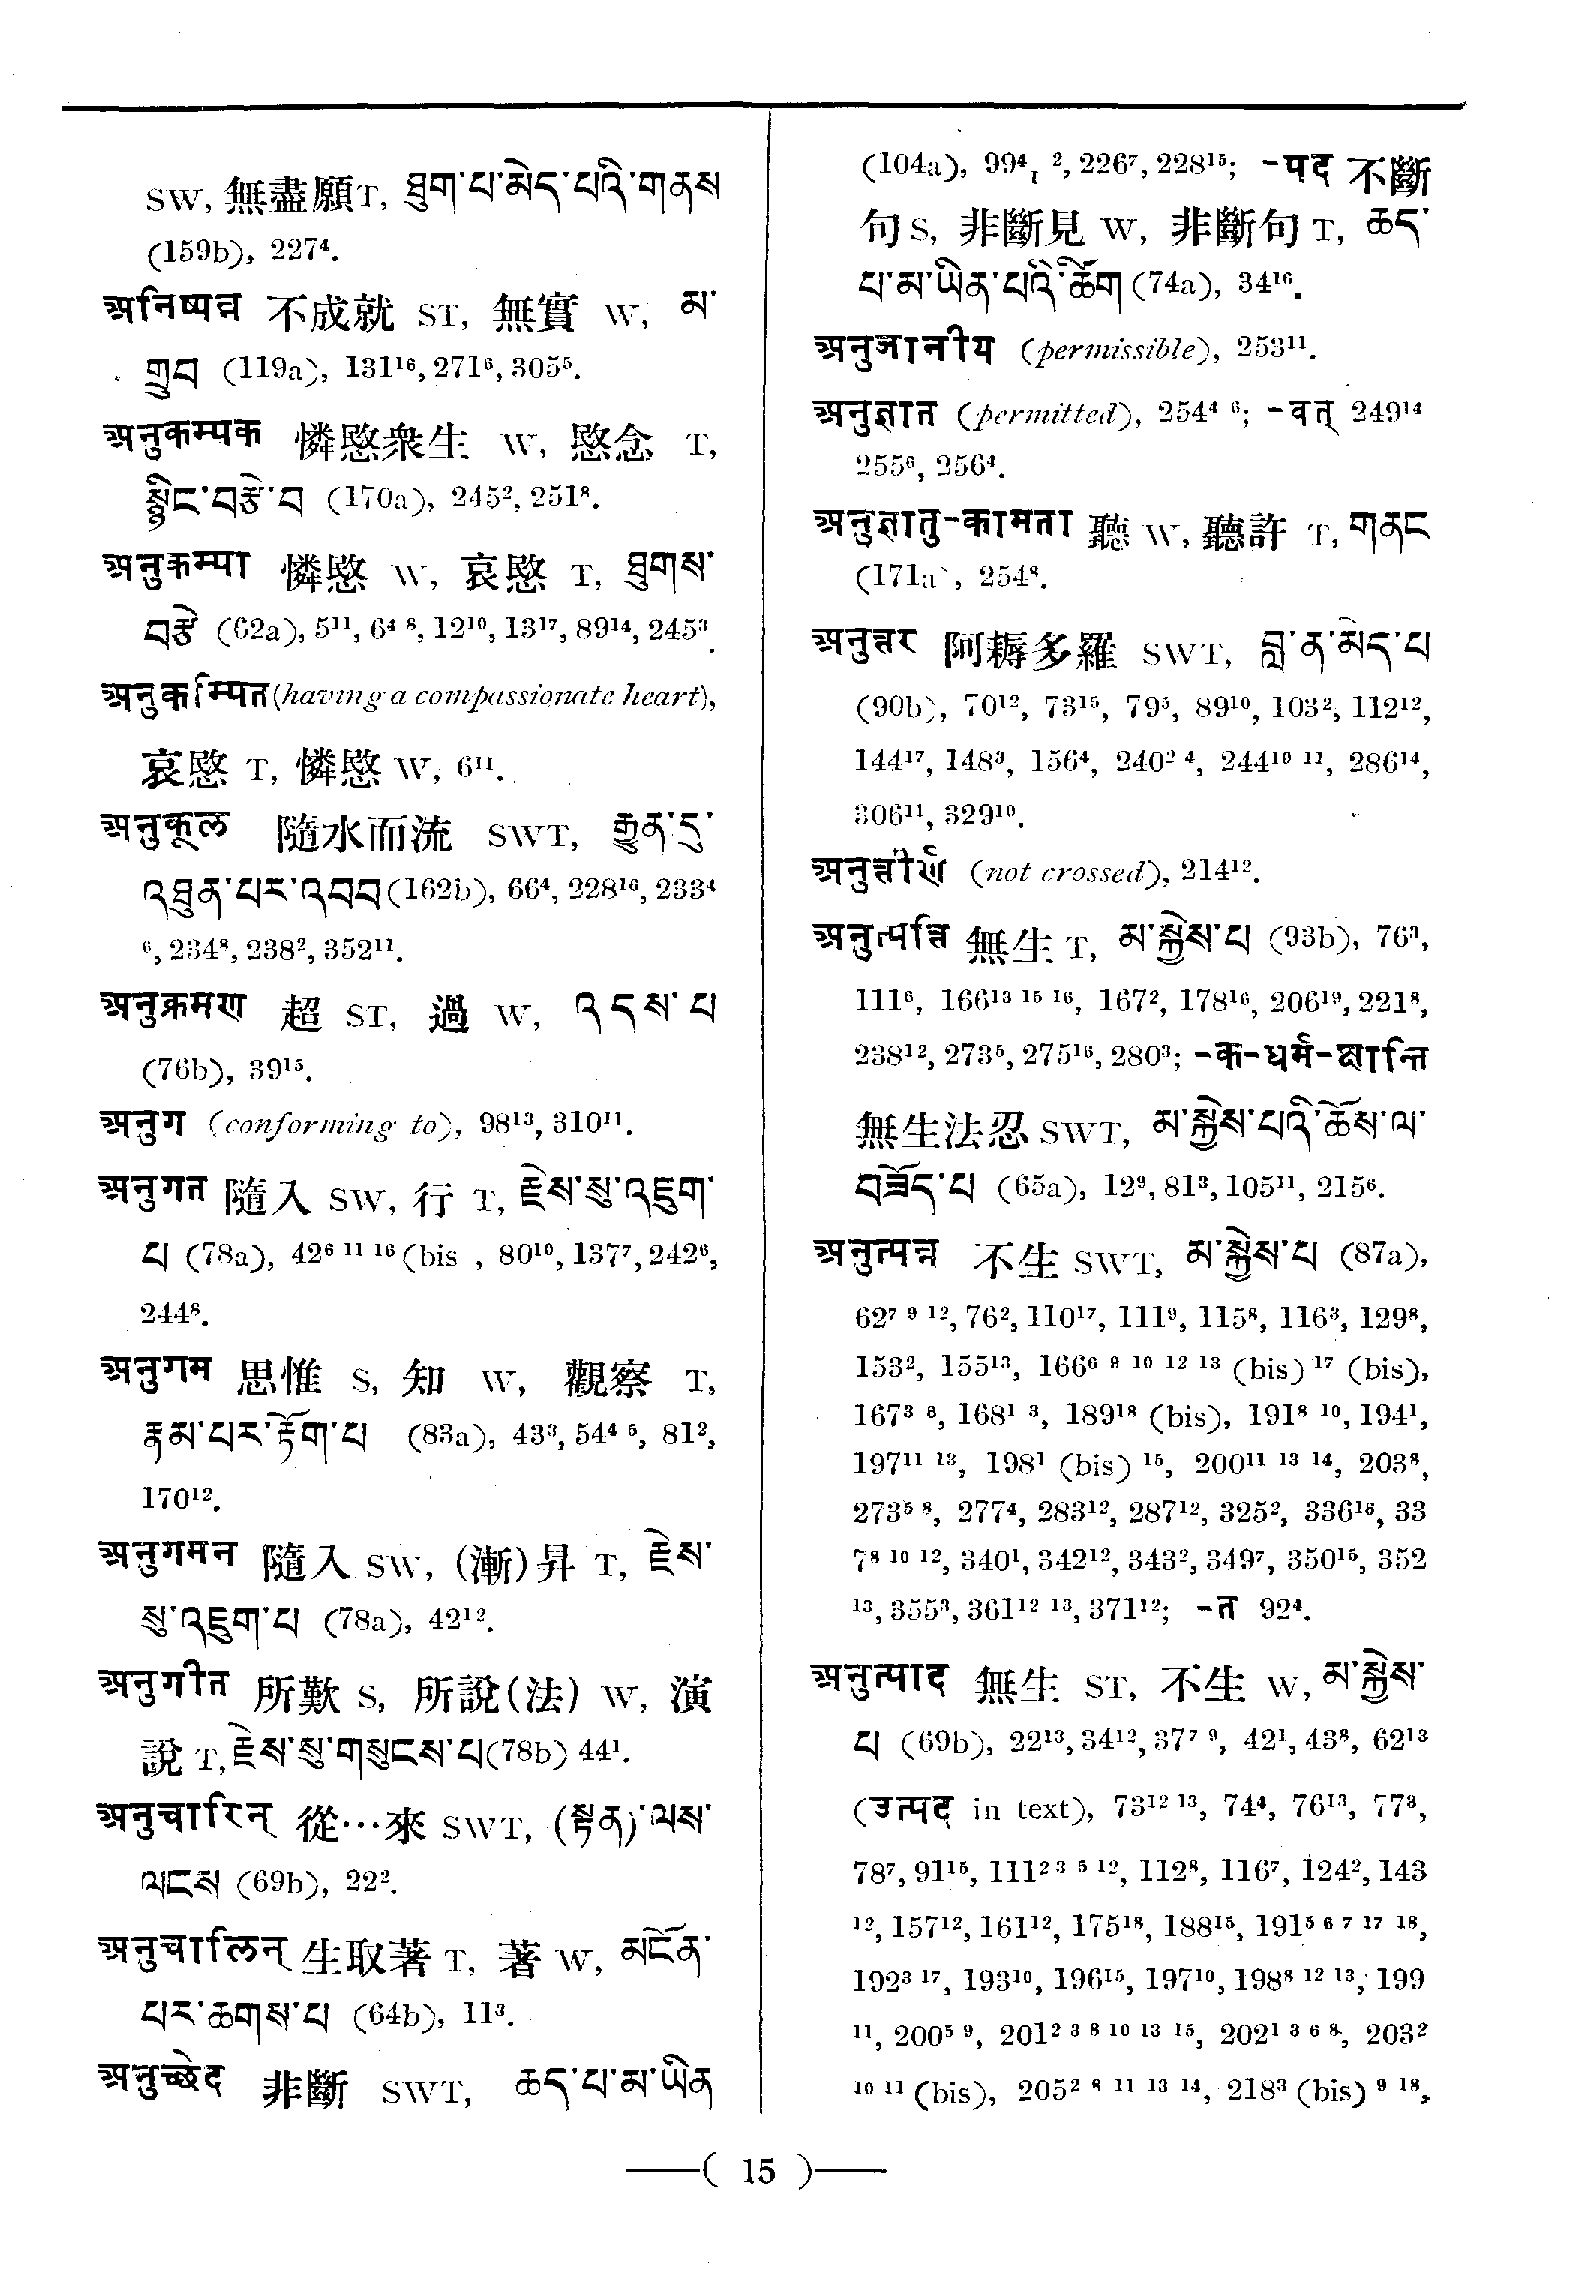 SW, 無盡願T, ཐུག་པ་མེད་པའི་གནས
(159b), 227⁴.
अनिष्पन्न 不成就 ST, 無實 W, མ་
གྲུབ (119a), 131¹⁶, 271⁶, 305⁵.
अनुकम्पक 憐愍衆生 W, 愍念 T,
སྙིང་བརྩེ་བ (170a), 245², 251⁸.
अनुकम्पा 憐愍 W, 哀愍 T, ཐུགས་
བརྩེ (62a), 5¹¹, 6⁴ ⁸, 12¹⁰, 13¹⁷, 89¹⁴, 245³.
अनुकम्पित (having a compassionate heart),
哀愍 T, 憐愍 W, 6¹¹.
अनुकूल 隨水而流 SWT, རྒྱུན་དུ་
འཐུན་པར་འབབ (162b), 66⁴, 228¹⁶, 233⁴
⁶, 234⁸, 238², 352¹¹.
अनुक्रमण 超 ST, 過 W, འདས་པ
(76b), 39¹⁵.
अनुग (conforming to), 98¹³, 310¹¹.
अनुगत 隨入 SW, 行 T, རྗེས་སུ་འཇུག་
པ (78a), 42⁶ ¹¹ ¹⁶ (bis , 80¹⁰, 137⁷, 242⁶,
244⁸.
अनुगम 思惟 S, 知 W, 觀察 T,
རྣམ་པར་རྟོག་པ (83a), 43³, 54⁴ ⁵, 81²,
170¹².
अनुगमन 隨入 SW, (漸)昇 T, རྗེས་
སུ་འཇུག་པ (78a), 42¹².
अनुगीत 所歎 S, 所說(法) W, 演
說 T, རྗེས་སུ་གསུངས་པ (78b) 44¹.
अनुचारिन् 從…來 SWT, (སྟེན)་ལས་
ལངས (69b), 22².
अनुचालिन् 生取著 T, 著 W, མངོན་
པར་ཆགས་པ (64b), 11³.
अनुच्छेद 非斷 SWT, ཆད་པ་མ་ཡིན
(104a), 99⁴, ², 226⁷, 228¹⁵; -पद 不斷
句 S, 非斷見 W, 非斷句 T, ཆད་
པ་མ་ཡིན་པའི་ཚིག (74a), 34¹⁶.
अनुजानीय (permissible), 253¹¹.
अनुज्ञात (permitted), 254⁴ ⁶; -वत् 249¹⁴
255⁶, 256⁴.
अनुज्ञातु-कामता 聽 W, 聽許 T, གནང
(171a), 254⁸.
अनुत्तर 阿耨多羅 SWT, བླ་ན་མེད་པ
(90b), 70¹², 73¹⁵, 79⁵, 89¹⁰, 103², 112¹²,
144¹⁷, 148³, 156⁴, 240² ⁴, 244¹⁰ ¹¹, 286¹⁴,
306¹¹, 329¹⁰.
अनुत्तीर्ण (not crossed), 214¹².
अनुत्पत्ति 無生 T, མ་སྐྱེས་པ (93b), 76³,
111⁶, 166¹³ ¹⁵ ¹⁶, 167², 178¹⁶, 206¹⁹, 221⁸,
238¹², 273⁵, 275¹⁶, 280³; -क-धर्म-क्षान्ति
無生法忍 SWT, མ་སྐྱེས་པའི་ཆོས་ལ་
བཟོད་པ (65a), 12⁹, 81³, 105¹¹, 215⁶.
अनुत्पन्न 不生 SWT, མ་སྐྱེས་པ (87a),
62⁷ ⁹ ¹², 76², 110¹⁷, 111⁹, 115⁸, 116³, 129⁸,
153², 155¹³, 166⁶ ⁹ ¹⁰ ¹² ¹³ (bis) ¹⁷ (bis),
167³ ⁸, 168¹ ³, 189¹⁸ (bis), 191⁸ ¹⁰, 194¹,
197¹¹ ¹³, 198¹ (bis) ¹⁵, 200¹¹ ¹³ ¹⁴, 203⁸,
273⁵ ⁸, 277⁴, 283¹², 287¹², 325², 336¹⁶, 33
7⁸ ¹⁰ ¹², 340¹, 342¹², 343², 349⁷, 350¹⁵, 352
¹³, 355³, 361¹² ¹³, 371¹²; -त 92⁴.
अनुत्पाद 無生 ST, 不生 W, མ་སྐྱེས་
པ (69b), 22¹³, 34¹², 37⁷ ⁹, 42¹, 43⁸, 62¹³
(उत्पद in text), 73¹² ¹³, 74⁴, 76¹³, 77⁸,
78⁷, 91¹⁵, 111² ³ ⁵ ¹², 112⁸, 116⁷, 124², 143
¹², 157¹², 161¹², 175¹⁸, 188¹⁵, 191⁵ ⁶ ⁷ ¹⁷ ¹⁸,
192³ ¹⁷, 193¹⁰, 196¹⁵, 197¹⁰, 198⁸ ¹² ¹³, 199
¹¹, 200⁵ ⁹, 201² ³ ⁸ ¹⁰ ¹³ ¹⁵, 202¹ ³ ⁶ ⁸, 203²
¹⁰ ¹¹ (bis), 205² ⁸ ¹¹ ¹³ ¹⁴, 218³ (bis) ⁹ ¹⁸,
( 15 )